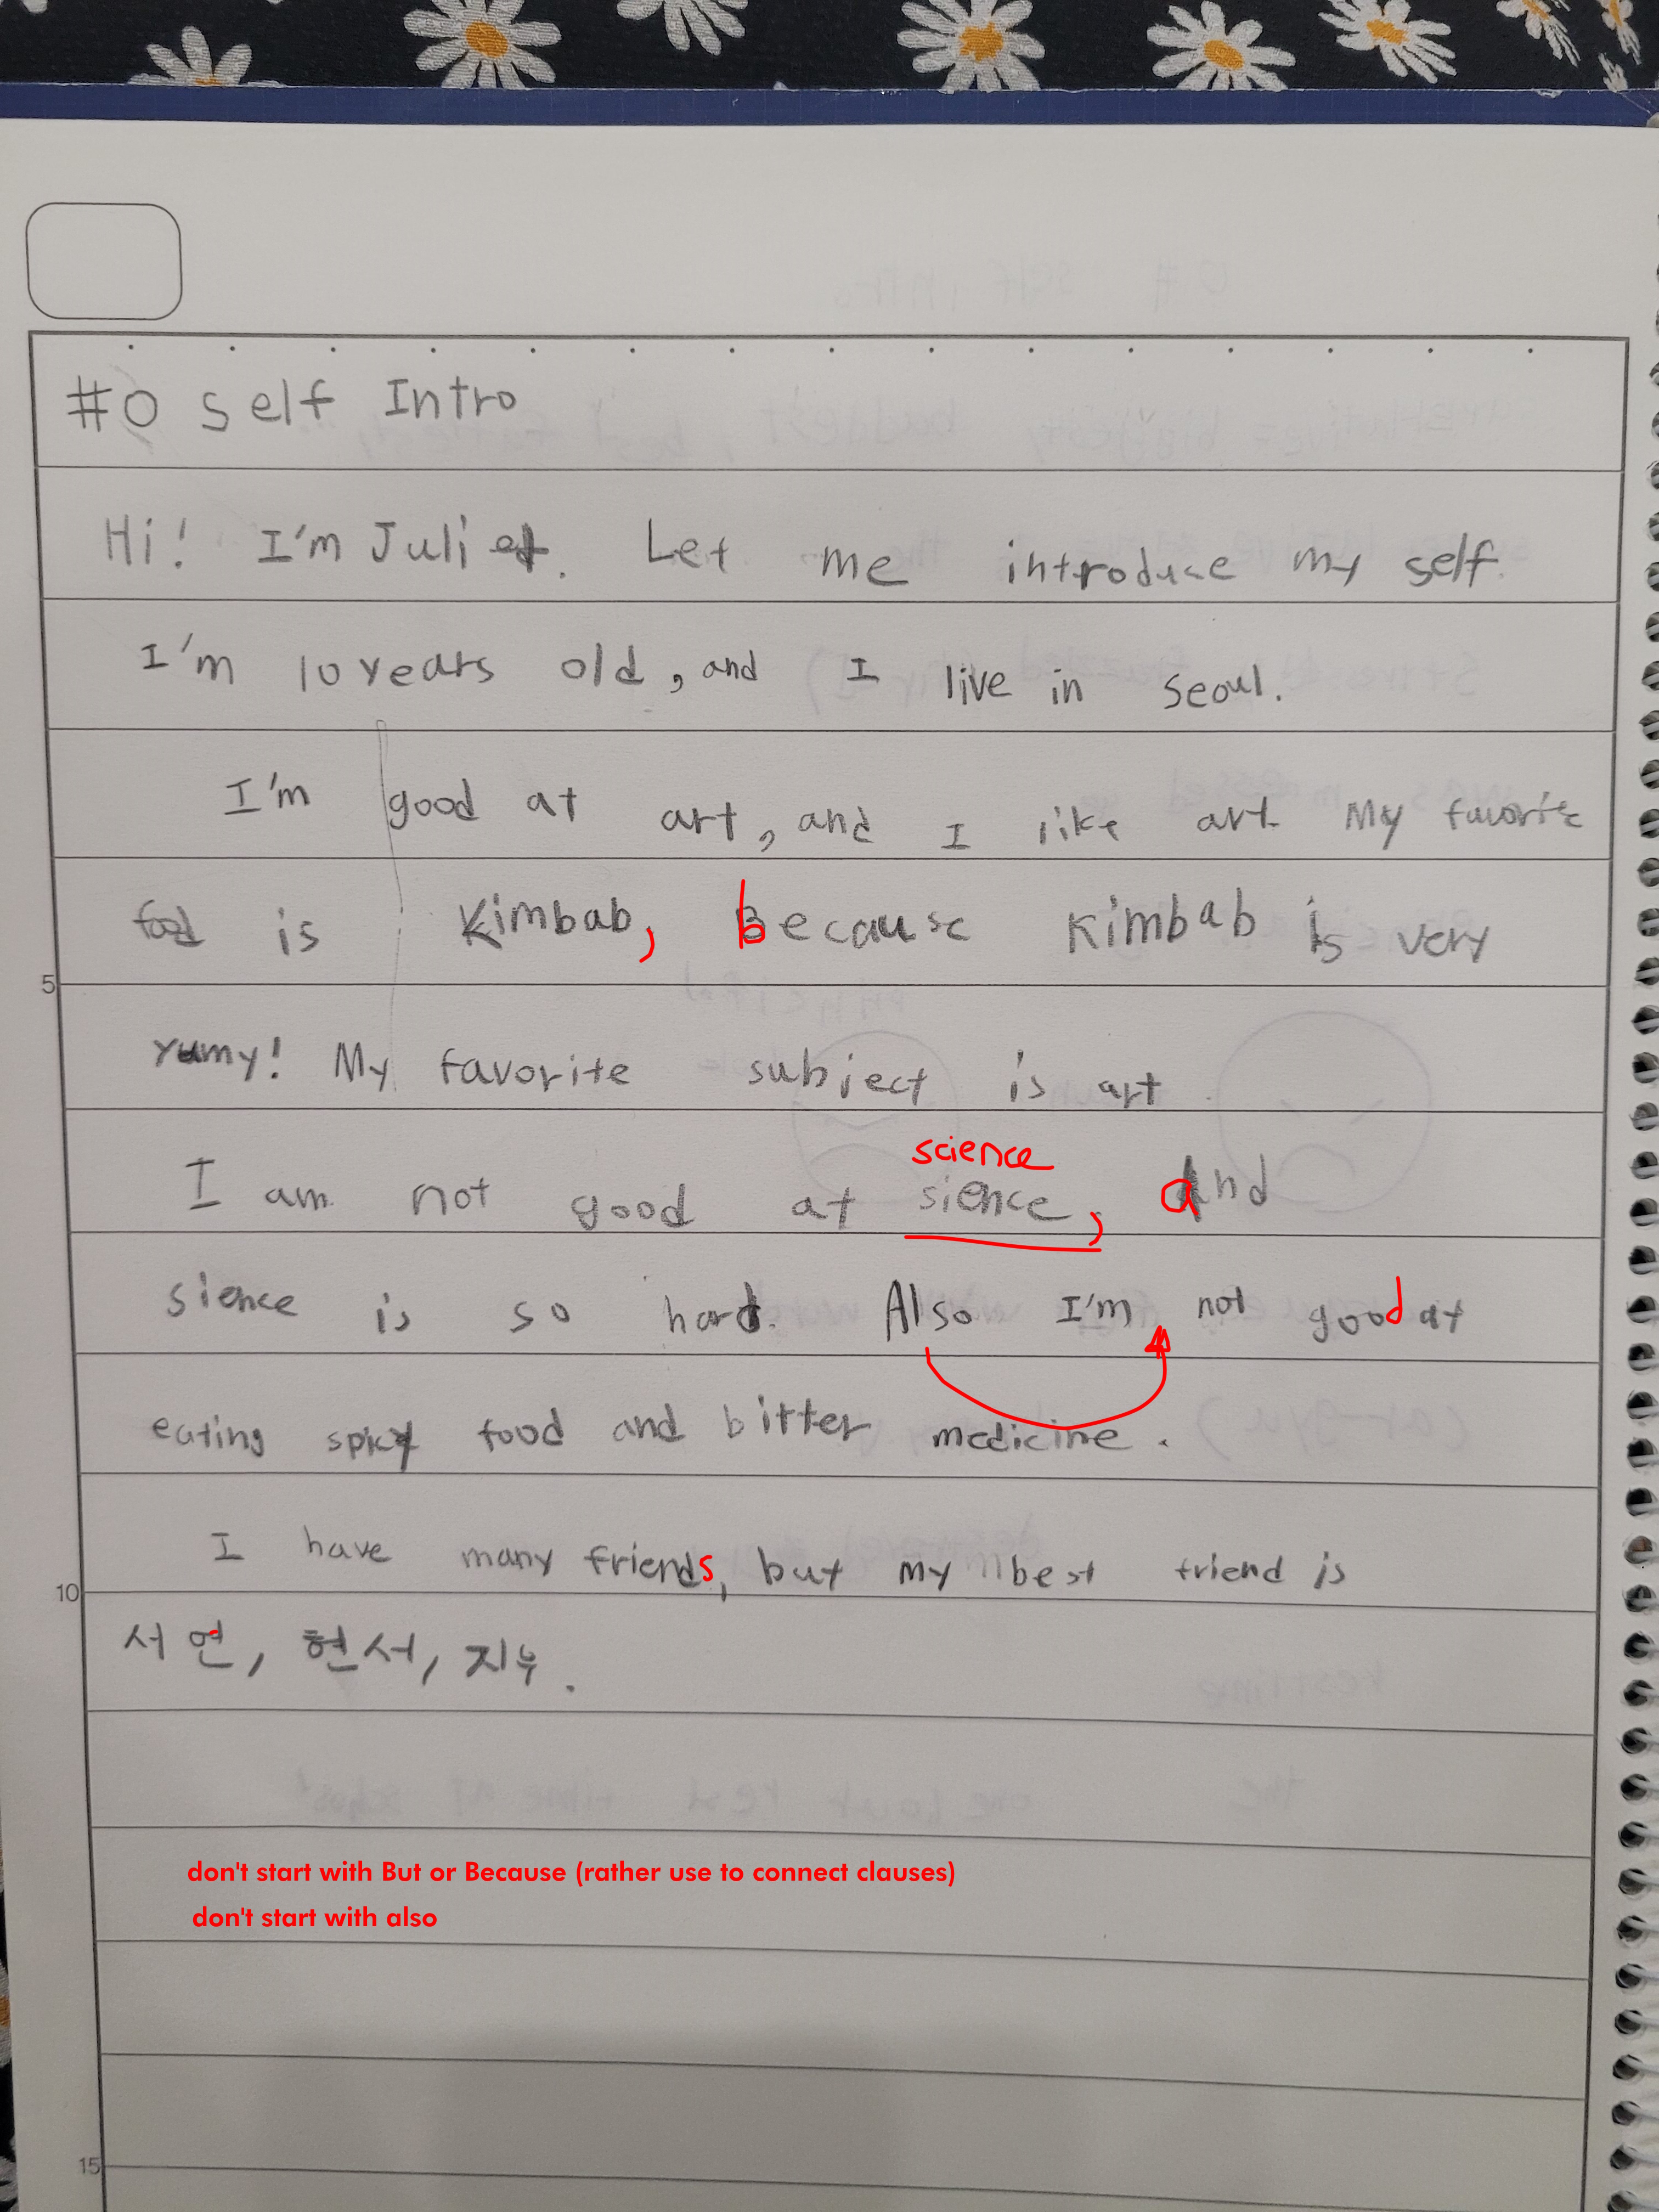 #0 self Intro
Hi! I'm Juliet. Let me introduce my self.
I'm 10 years old, and I live in seoul.
I'm good at art, and I like art. My favorite
food is Kimbab, because Kimbab is very
yumy! My favorite subject is art.
science
I am not good at sience, and
sience is so hard. Also I'm not good at
eating spicy food and bitter medicine.
I have many friends, but my best friend is
서연, 현서, 지우.
don't start with But or Because (rather use to connect clauses)
don't start with also
5
10
15